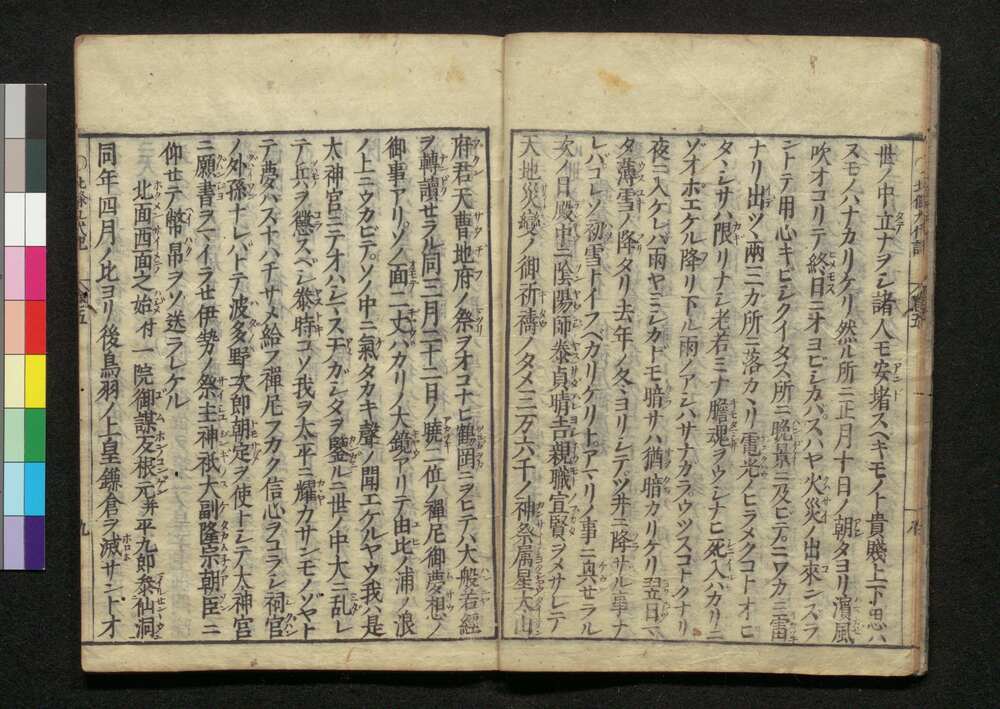 世ノ中立ナヲシ諸人モ安堵スヘキモノト貴賤上下思ハ
スモノハナカリケリ然ル所ニ正月十日ノ朝タヨリ濱風
吹オコリテ終日ニオヨビシカバスハヤ火災ノ出來ンズラ
ントテ用心キビシクイタス所ニ晩景ニ及ヒテニワカニ雷
ナリ出ツヽ兩三カ所ニ落カヽリ電光ノヒラメクコトオヒ
タヽシサハ限リナシ老若ミナ膽魂ヲウシナヒ死入ハカリニ
ゾオボエケル降リ下ル雨ノアシハサナカラウツスコトクナリ
夜ニ入ケレバ雨ヤミシカドモ暗サハ猶暗カリケリ翌日ニ
タ薄雪ノ降タリ去年ノ冬ヨリシテヅ井ニ降サル事ナ
レバコレソ初雪トイスヘカリケリヨトアマリノ事ニ與セラル
次ノ日殿中ニ陰陽師泰貞晴吉親職宣賢ヲメサレテ
天地災變ノ御祈禱ノタメ三万六千ノ神祭属星太山
府君天曹地府ノ祭ヲオコナヒ鶴岡ニヲヒテハ大般若經
ヲ轉讀せラル同三月二十二日ノ曉二位ノ禪尼御夢想ノ
御事アリソノ面二丈バカリノ大鏡アリテ由比ノ浦ノ浪
ノ上ニウカビテソノ中ニ氣タカキ聲ノ聞エケルヤウ我ハ是
太神宮ニテオハシマス天ガシタヲ鑒ルニ世ノ中大ニ乱レ
テ兵ヲ懲スベシ泰時コソ我ヲ太平ニ耀カサンモノゾヤト
テ夢ハスナハチサメ給フ禪尼フカク信心ヲコラシ祠官
ノ外孫ナレバトテ波多野次郎朝定ヲ使トシテ大神宮
ニ願書ヲマイラせ伊勢ノ祭主神祇大副隆宗朝臣ニ
仰せテ幣帛ヲソ送ラレケル
北面西面之始付一院御謀反根元并平九郎泰仙洞
同年四月ノ比ヨリ後鳥羽ノ上皇鎌倉ヲ滅サントオ
九